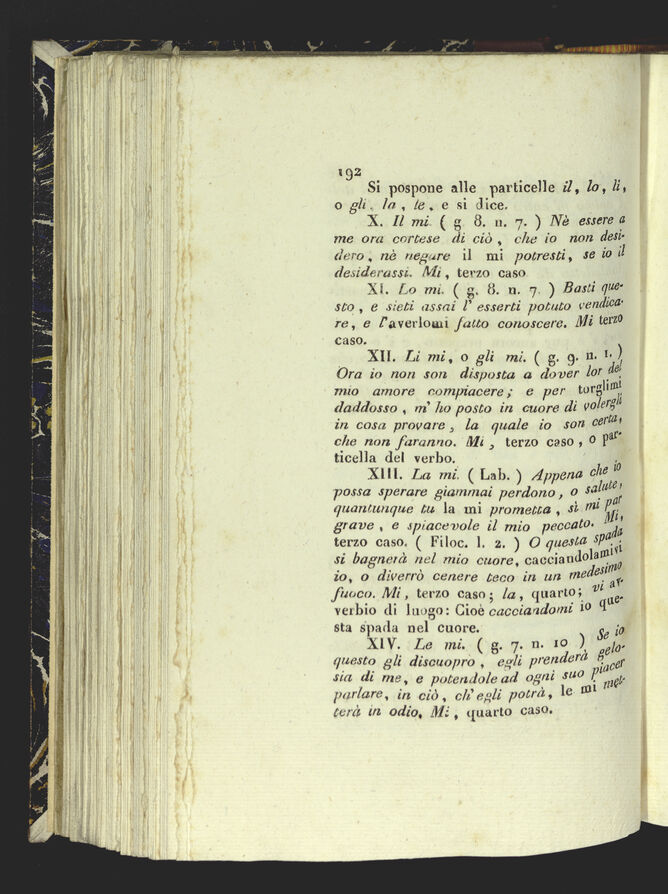 192
Si pospone alle particelle il, lo, li,
o gli, la, te, e si dice.
X. Il mi. ( g. 8. n. 7. ) Nè essere a
me ora cortese di ciò, che io non desi-
dero, nè negare il mi potresti, se io il
desiderassi. Mi, terzo caso
XI. Lo mi. ( g. 8. n. 7. ) Basti que-
sto, e sieti assai l' esserti potuto vendica-
re, e l'averlomi fatto conoscere. Mi terzo
caso.
XII. Li mi, o gli mi. ( g. 9. n. 1. )
Ora io non son disposta a dover lor del
mio amore compiacere; e per torglimi
daddosso, m' ho posto in cuore di volergli
in cosa provare, la quale io son certa,
che non faranno. Mi, terzo caso, o par-
ticella del verbo.
XIII. La mi. ( Lab. ) Appena che io
possa sperare giammai perdono, o salute,
quantunque tu la mi prometta, sì mi par
grave, e spiacevole il mio peccato. Mi,
terzo caso. ( Filoc. l. 2. ) O questa spada
si bagnerà nel mio cuore, cacciandolamivi
io, o diverrò cenere teco in un medesimo
fuoco. Mi, terzo caso; la, quarto; vi av-
verbio di luogo: Cioè cacciandomi io que-
sta spada nel cuore.
XIV. Le mi. ( g. 7. n. 10 ) Se io
questo gli discuopro, egli prenderà gelo-
sia di me, e potendole ad ogni suo piacer
parlare, in ciò, ch' egli potrà, le mi met-
terà in odio. Mi, quarto caso.